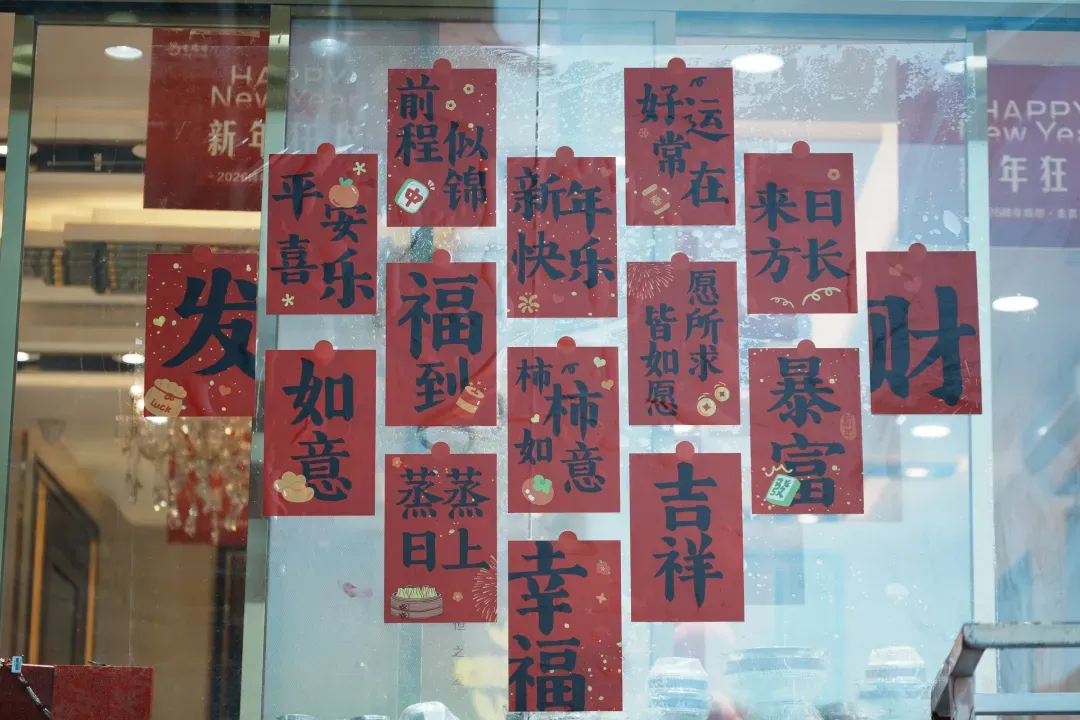 HAPPY
New Year
新年
2026
前程
似锦
好运
常在
HAPPY
New Year
年狂
平安
喜乐
新年
快乐
来日
方长
发
福
到
愿所求
皆如愿
财
如
意
柿柿
如意
暴
富
蒸蒸
日上
吉
祥
幸
福
luck
中
發